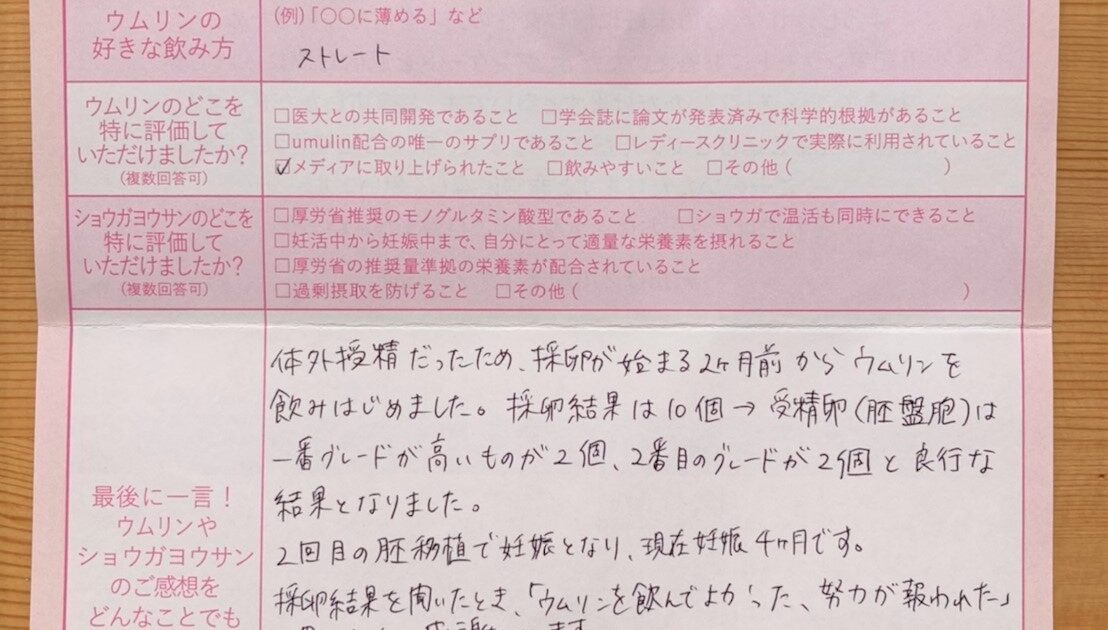 ウムリンの
好きな飲み方
(例)「〇〇に薄める」など
ストレート
ウムリンのどこを
特に評価して
いただけましたか?
(複数回答可)
□医大との共同開発であること □学会誌に論文が発表済みで科学的根拠があること
□umulin配合の唯一のサプリであること □レディースクリニックで実際に利用されていること
☑メディアに取り上げられたこと □飲みやすいこと □その他 ( )
ショウガヨウサンのどこを
特に評価して
いただけましたか?
(複数回答可)
□厚労省推奨のモノグルタミン酸型であること □ショウガで温活も同時にできること
□妊活中から妊娠中まで、自分にとって適量な栄養素を摂れること
□厚労省の推奨量準拠の栄養素が配合されていること
□過剰摂取を防げること □その他 ( )
最後に一言!
ウムリンや
ショウガヨウサン
のご感想を
どんなことでも
体外授精だったため、採卵が始まる2ヶ月前からウムリンを
飲みはじめました。採卵結果は10個→受精卵(胚盤胞)は
一番グレードが高いものが2個、2番目のグレードが2個と良行な
結果となりました。
2回目の胚移植で妊娠となり、現在妊娠4ヶ月です。
採卵結果を聞いたとき、「ウムリンを飲んでよかった、努力が報われた」